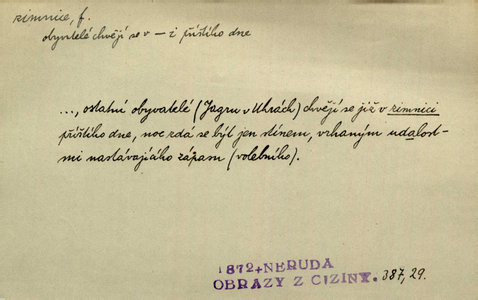 zimnice, f.
obyvatelé chvějí se v — z příštího dne
..., ostatní obyvatelé (Jagru v Uhrách) chvějí se již v zimnici
příštího dne, noc zdá se být jen stínem, vrhaným udalost-
mi nastávajícího zápasu (volebního).
1872+NERUDA
OBRAZY Z CIZINY. 387,29.